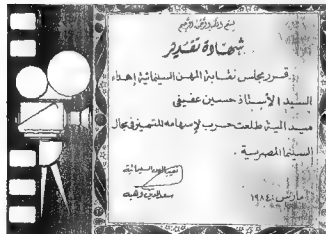 بسم الله الرحمن الرحيم
شهادة تقدير
قرر مجلس نقابة المهن السينمائية إهداء
السيد الأستاذ حسين عفيفى
ميدالية طلعت حرب لإسهامه المتميز فى مجال
السينما المصرية.
نقيب المهن السينمائية
سعد الدين وهبه
مارس ١٩٨٤